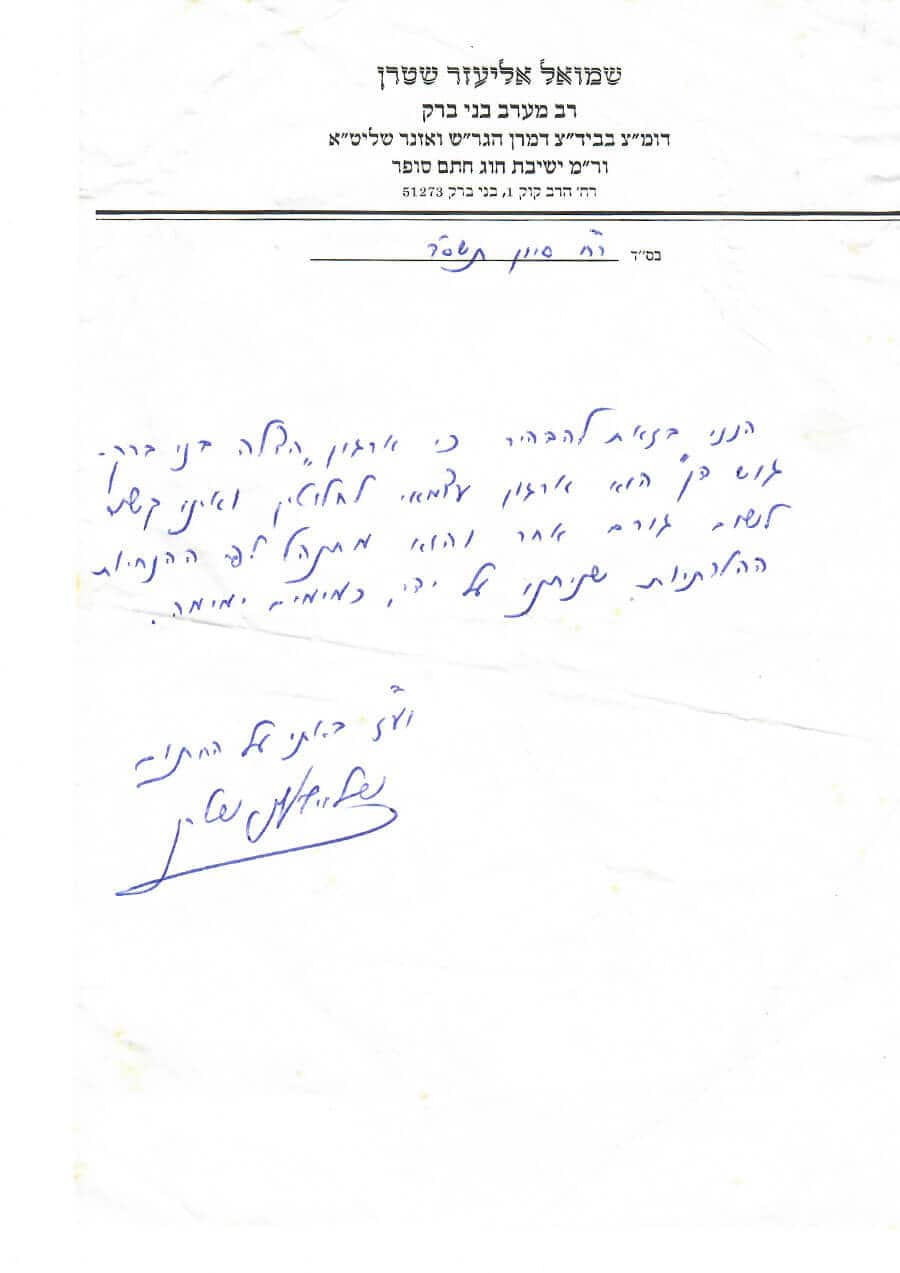 שמואל אליעזר שטרן
רב מערב בני ברק
דומ"צ בביד"צ דמרן הגר"ש ואזנר שליט"א
ור"מ ישיבת חוג חתם סופר
רח' הרב קוק 1, בני ברק 51273
בס"ד ר"ח סיון תשס"ד
הנני בזאת להבהיר כי ארגון "הצלה בני ברק-
גוש דן" הוא ארגון עצמאי לחלוטין ואינו קשור
לשום גורם אחר והוא מתנהל לפי ההנחיות
ההלכתיות שניתנו על ידי, כמימים ימימה.
וע"ז באתי על החתום
שטרן